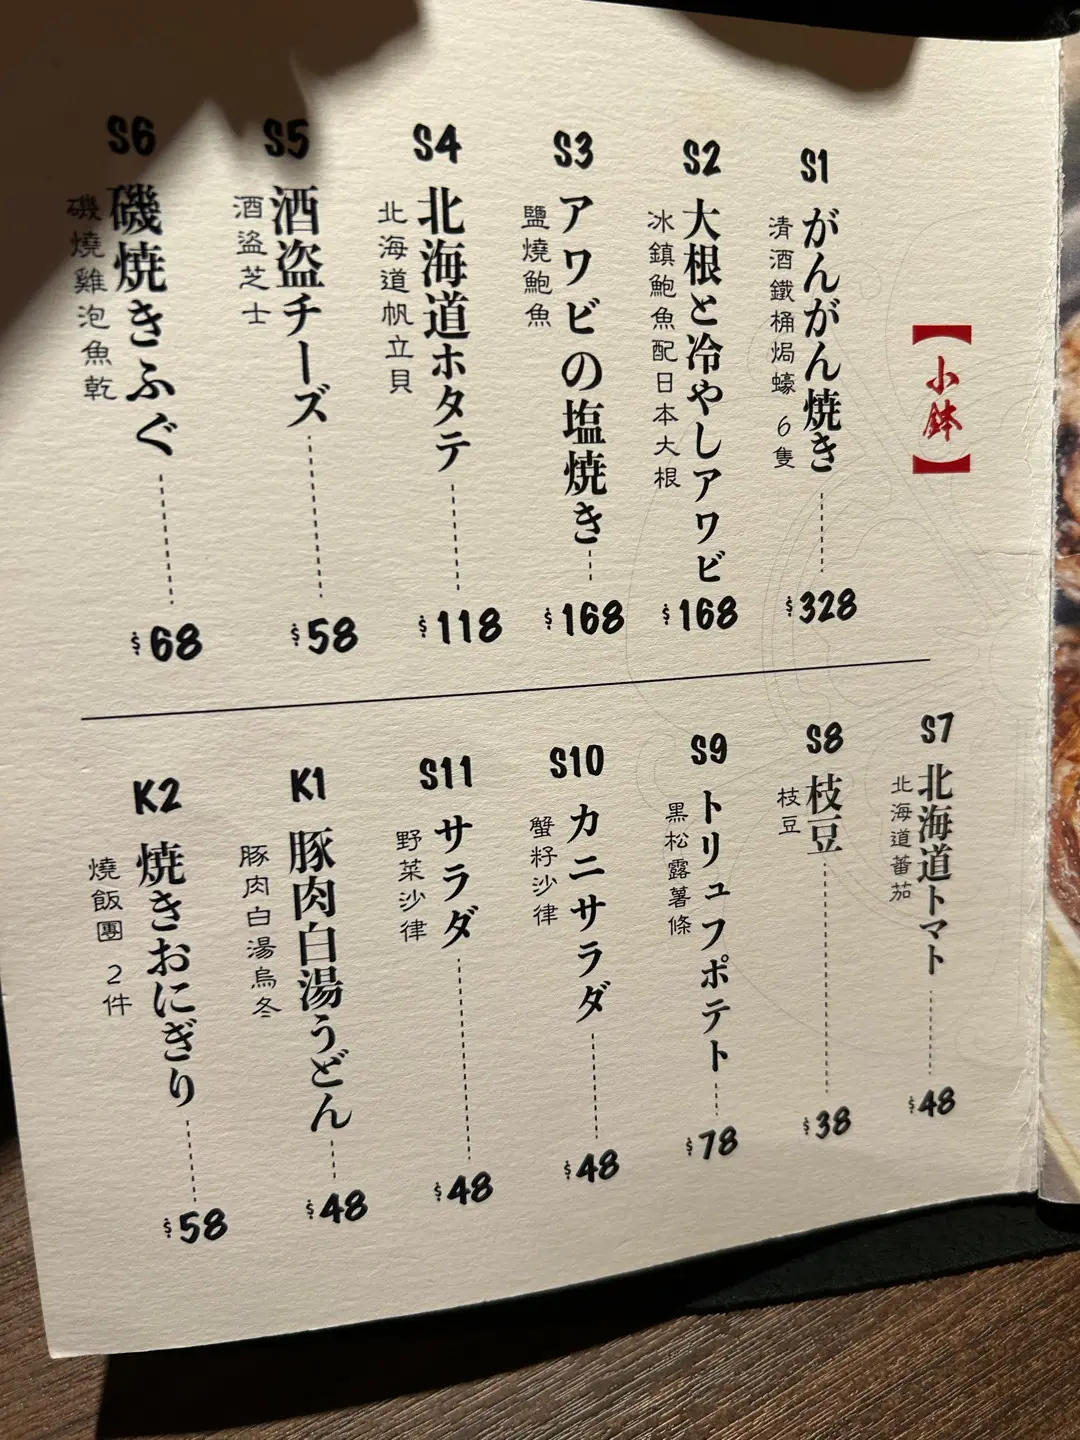 【小鉢】
S1
がんがん焼き
清酒鐵桶焗蠔 6隻
$328
S2
大根と冷やしアワビ
冰鎮鮑魚配日本大根
$168
S3
アワビの塩焼き
鹽燒鮑魚
$168
S4
北海道ホタテ
北海道帆立貝
$118
S5
酒盗チーズ
酒盜芝士
$58
S6
磯焼きふぐ
磯燒雞泡魚乾
$68
S7
北海道トマト
北海道蕃茄
$48
S8
枝豆
枝豆
$38
S9
トリュフポテト
黑松露薯條
$78
S10
カニサラダ
蟹籽沙律
$48
S11
サラダ
野菜沙律
$48
K1
豚肉白湯うどん
豚肉白湯烏冬
$48
K2
焼きおにぎり
燒飯團 2件
$58